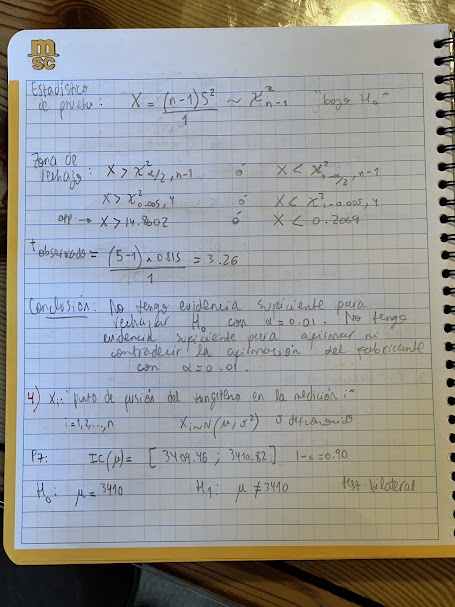 m
SC
Estadístico
de prueba: X = (n-1)S² / 1 ~ χ²_{n-1} "bajo H₀"
Zona de
rechazo: X > χ²_{α/2, n-1} ó X < χ²_{1-α/2, n-1}
X > χ²_{0.005, 4} ó X < χ²_{1-0.005, 4}
app → X > 14.8602 ó X < 0.2069
t observado = (5-1) * 0.815 / 1 = 3.26
Conclusión: No tengo evidencia suficiente para
rechazar H₀ con α = 0.01. No tengo
evidencia suficiente para afirmar ni
contradecir la afirmación del fabricante
con α = 0.01.
4) Xi: "punto de fusión del tungsteno en la medición i"
i = 1,2,...,n Xi ~ N(μ, σ²) σ desconocido
P7: IC(μ) = [3409.46 ; 3410.82] 1-α = 0.90
H₀: μ = 3410 H₁: μ ≠ 3410 test bilateral